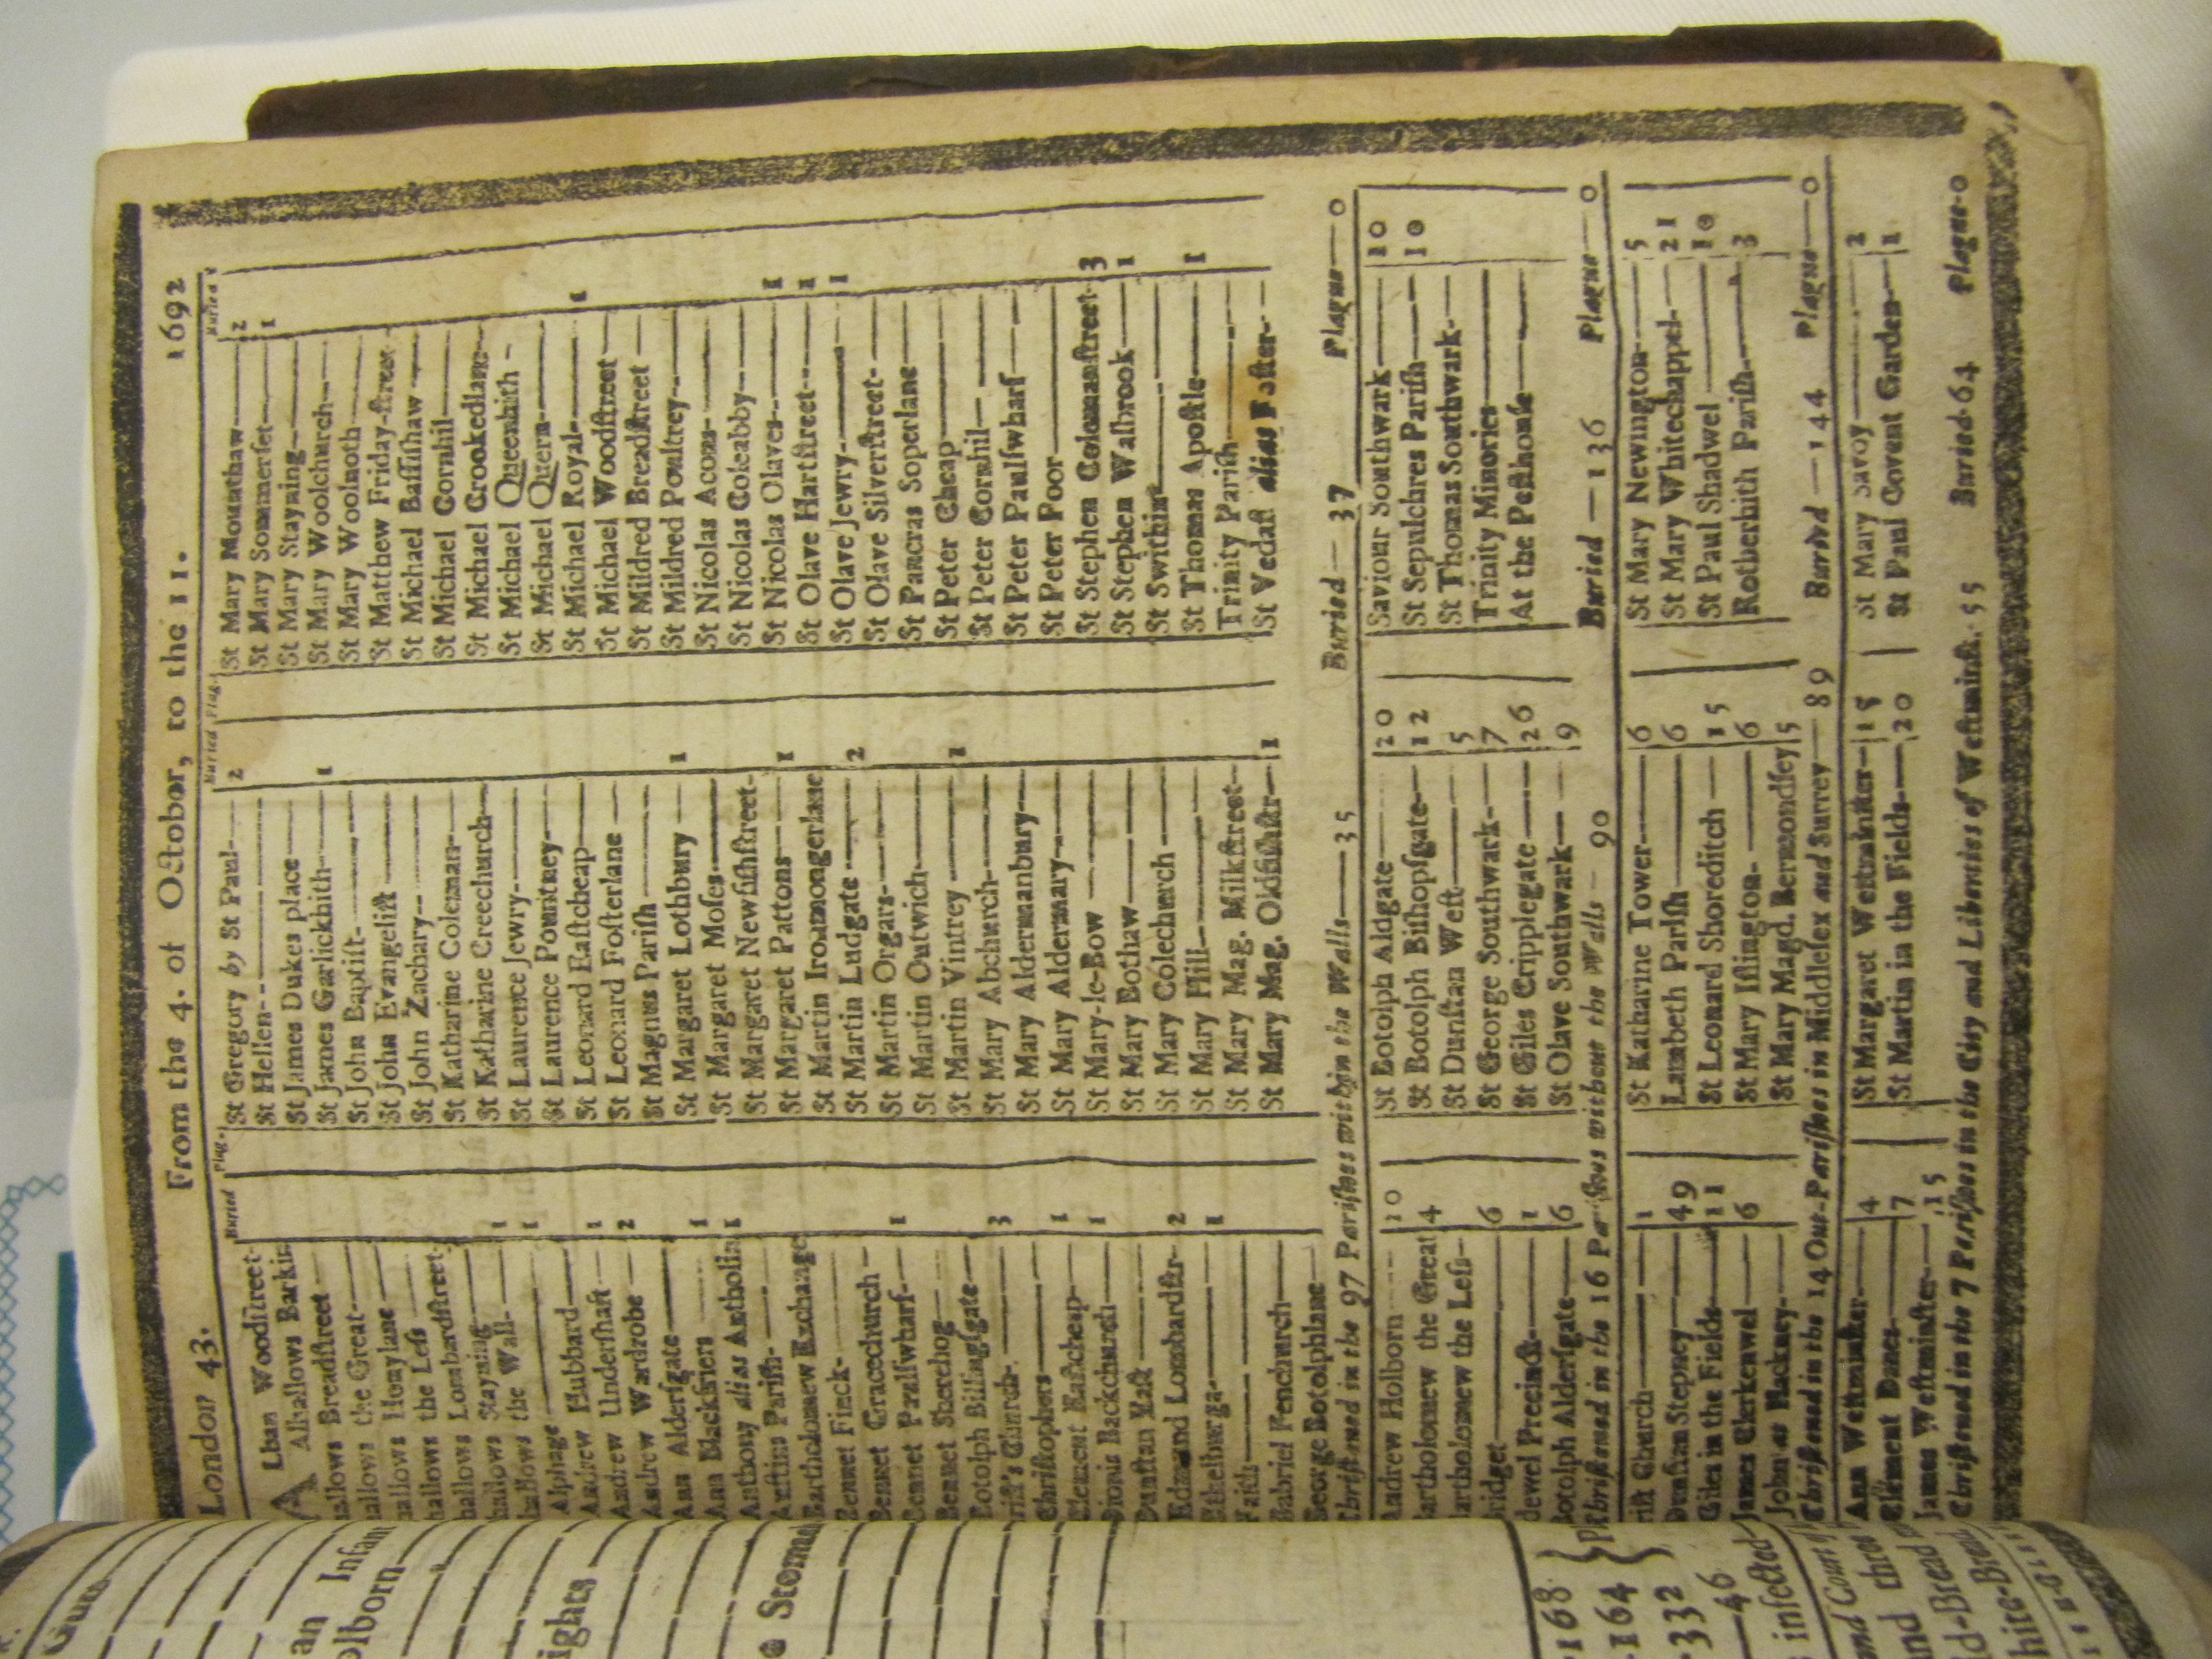 London 43. From the 4. of October, to the 11. 1692
Buried Plag.
Buried Plag.
Buried
ALban Woodſtreet
Alhallows Barkin
allows Breadſtreet
allows the Great
allows Honylane
hallows the Leſs
hallows Lombardſtreet
hallows Stayning 1
hallows the Wall 1
Alphage
Andrew Hubbard 1
Andrew Underſhaft 1
Andrew Wardrobe 2
Ann Alderſgate
Ann Blackfriers 1
Anthony alias Antholin 1
Auſtins Pariſh
Bartholomew Exchange
Bennet Finck
Bennet Gracechurch
Bennet Paulſwharf 1
Bennet Sherehog
Botolph Billingſgate
Chriſt's Church 3
Chriſtophers
Clement Eaſtcheap 1
Dionis Backchurch 1
Dunſtan Eaſt
Edmund Lombardſtr 2
Ethelburga 1
Faith
Gabriel Fenchurch
George Botolphlane
St Gregory by St Paul 2
St Hellen
St James Dukes place
St James Garlickhith 1
St John Baptiſt
St John Evangeliſt
St John Zachary
St Katharine Coleman
St Katharine Creechurch
St Laurence Jewry
St Laurence Pountney
St Leonard Eaſtcheap
St Leonard Foſterlane
St Magnus Pariſh
St Margaret Lothbury 1
St Margaret Moſes
St Margaret Newfiſhſtreet
St Margaret Pattons 1
St Martin Ironmongerlane
St Martin Ludgate 2
St Martin Orgars
St Martin Outwich
St Martin Vintrey 1
St Mary Abchurch
St Mary Aldermanbury
St Mary Aldermary
St Mary-le-Bow
St Mary Bothaw
St Mary Colechurch
St Mary Hill
St Mary Mag. Milkſtreet
St Mary Mag. Oldfiſhſtr 1
St Mary Mounthaw 2
St Mary Sommerſet 1
St Mary Stayning
St Mary Woolchurch
St Mary Woolnoth
St Matthew Friday-ſtreet
St Michael Baſſiſhaw
St Michael Cornhil
St Michael Crookedlane
St Michael Queenhith
St Michael Quern
St Michael Royal 1
St Michael Woodſtreet
St Mildred Breadſtreet
St Mildred Poultrey
St Nicolas Acons
St Nicolas Coleabby
St Nicolas Olaves 1
St Olave Hartſtreet 1
St Olave Jewry 1
St Olave Silverſtreet
St Pancras Soperlane
St Peter Cheap
St Peter Cornhil
St Peter Paulſwharf
St Peter Poor
St Stephen Colemanſtreet 3
St Stephen Walbrook 1
St Swithin
St Thomas Apoſtle 1
Trinity Pariſh
St Vedaſt alias Foſter
Chriſtened in the 97 Pariſhes within the Walls 35 Buried 37 Plague 0
Andrew Holborn 10
Bartholomew the Great 4
Bartholomew the Leſs
Bridget 6
idewel Precinct 1
Botolph Alderſgate 6
St Botolph Aldgate 20
St Botolph Biſhopſgate 12
St Dunſtan Weſt 5
St George Southwark 7
St Giles Cripplegate 26
St Olave Southwark 9
Saviour Southwark 10
St Sepulchres Pariſh 10
St Thomas Southwark
Trinity Minories
At the Peſthouſe
Chriſtened in the 16 Pariſhes without the Walls 90 Buried 136 Plague 0
riſt Church 1
Dunſtan Stepney 49
Giles in the Fields 11
James Clerkenwel 6
John at Hackney
St Katharine Tower 6
Lambeth Pariſh 6
St Leonard Shoreditch 15
St Mary Iſlington 6
St Mary Magd. Bermondſey 5
St Mary Newington 5
St Mary Whitechappel 21
St Paul Shadwel 10
Rotherhith Pariſh 3
Chriſtened in the 14 Out-Pariſhes in Middleſex and Surrey 89 Buried 144 Plague 0
Ann Weſtminſter 4
Clement Danes 7
James Weſtminſter 15
St Margaret Weſtminſter 18
St Martin in the Fields 20
St Mary Savoy 2
St Paul Covent Garden 1
Chriſtened in the 7 Pariſhes in the City and Liberties of Weſtminſt. 55 Buried 64 Plague 0
an Infan
olborn
ighes
Stomac
168
164
332
46
infected
and Court of
and three
d-Bread
hite-Bread